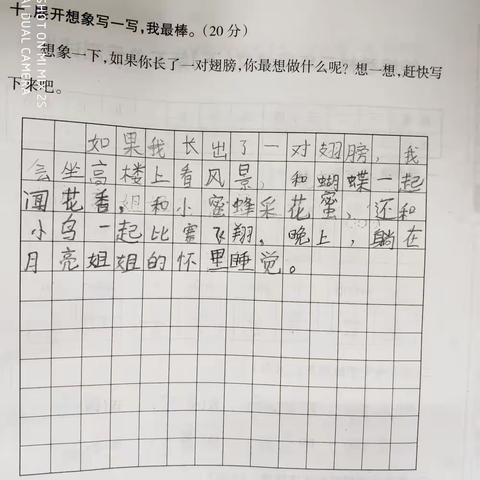 十、展开想象写一写,我最棒。(20分)
想象一下,如果你长了一对翅膀,你最想做什么呢?想一想,赶快写
下来吧。
如果我长出了一对翅膀,我
会坐高楼上看风景,和蝴蝶一起
闻花香,和小蜜蜂采花蜜,还和
小鸟一起比赛飞翔。晚上,躺在
月亮姐姐的怀里睡觉。
SHOT ON MI MIX2S
AI DUAL CAMERA